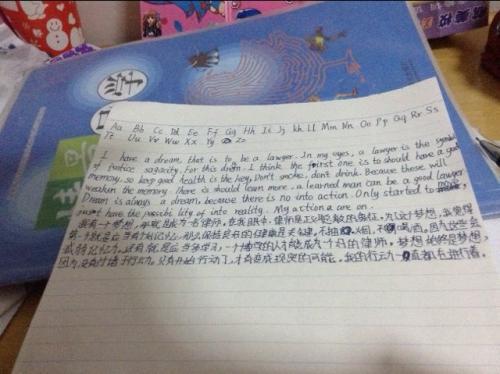 Aa Bb Cc Dd Ee Ff Gg Hh Ii Jj kk Ll Mm Nn Oo Pp Qq Rr Ss
Tt Uu Vv Ww Xx Yy Zz
I have a dream, that is to be a lawyer. In my eyes, a lawyer is the symbol
of justice sagacity. For this dream. I think the first one is to should have a good
memory. so keep good health is the key, Don't smoke, don't drink. Because these will
weaken the memory. There is should learn more. a learned man can be a good lawyer
Dream is always a dream, because there is no into action. Only started to
have the possibi lity of into reality. My action are on.
我有一个梦想,那就是成为一名律师。在我眼中,律师是正义的象征。为了这个梦想,我觉得
第一个就是应当有个好记忆,那么保持良好的健康是关键,不抽烟,不喝酒。因为这些会
减弱记忆力。还有就是应当多学习,一个博学的人才能成为一个好的律师。梦想始终是梦想,
因为没有付诸于行动。只有开始行动了,才有变成现实的可能。我的行动一直都在进行着。